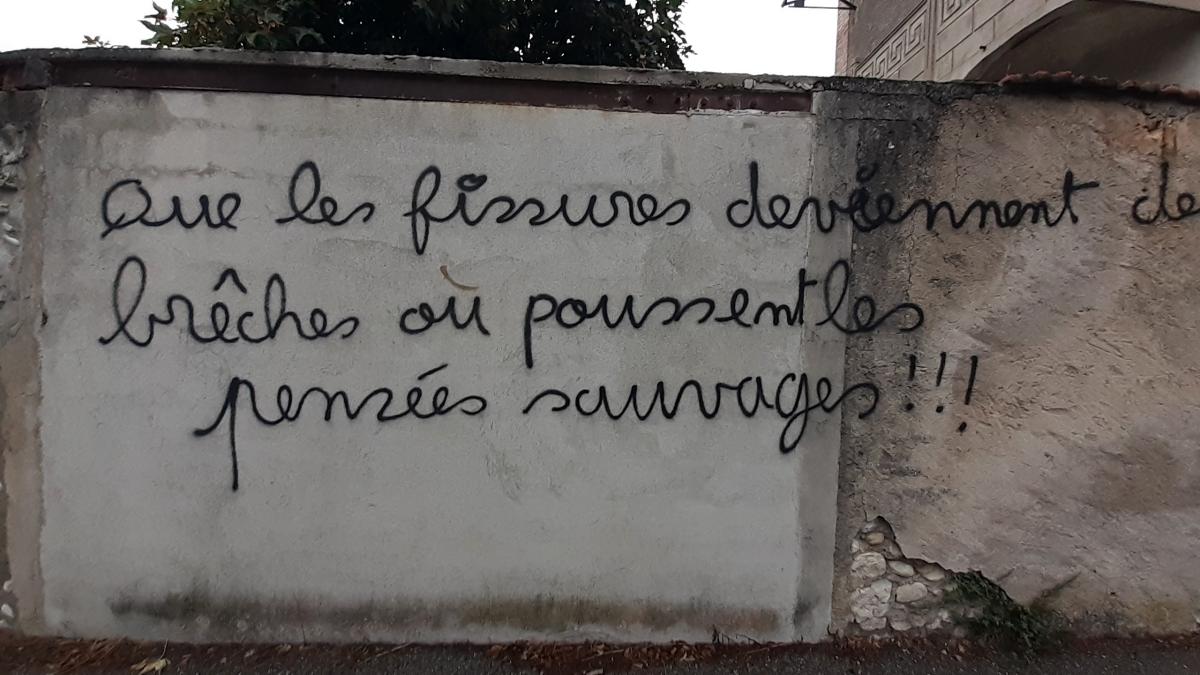 Que les fissures deviennent de
brêches où poussent les
pensées sauvages !!!